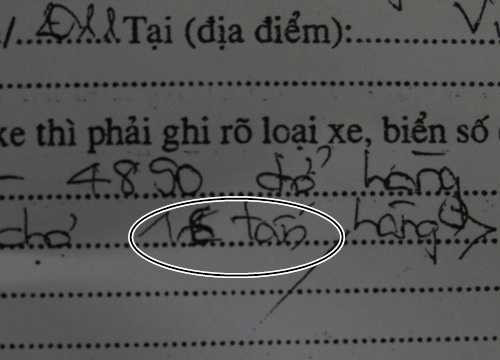 /....2011 Tại (địa điểm):
xe thì phải ghi rõ loại xe, biển số
- 4890 chở hàng
chở tấn hàng